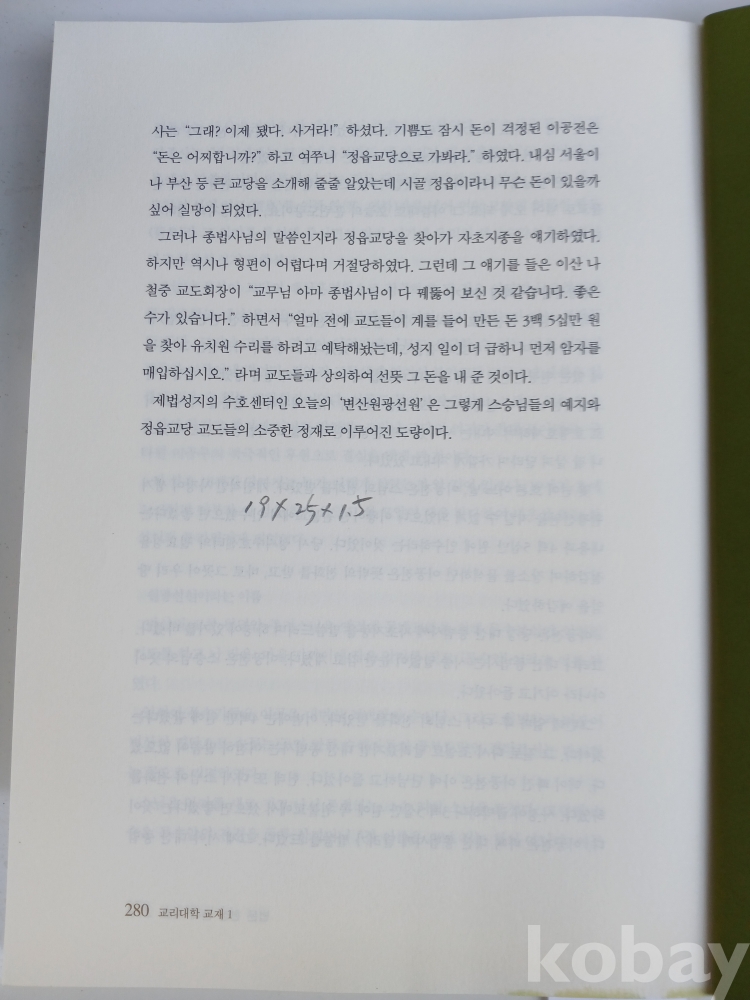 사는 “그래? 이제 됐다. 사거라!” 하셨다. 기쁨도 잠시 돈이 걱정된 이공전은
“돈은 어찌합니까?” 하고 여쭈니 “정읍교당으로 가봐라.” 하였다. 내심 서울이
나 부산 등 큰 교당을 소개해 줄줄 알았는데 시골 정읍이라니 무슨 돈이 있을까
싶어 실망이 되었다.
그러나 종법사님의 말씀인지라 정읍교당을 찾아가 자초지종을 얘기하였다.
하지만 역시나 형편이 어렵다며 거절당하였다. 그런데 그 얘기를 들은 이산 나
철중 교도회장이 “교무님 아마 종법사님이 다 꿰뚫어 보신 것 같습니다. 좋은
수가 있습니다.” 하면서 “얼마 전에 교도들이 계를 들어 만든 돈 3백 5십만 원
을 찾아 유치원 수리를 하려고 예탁해놨는데, 성지 일이 더 급하니 먼저 암자를
매입하십시오.” 라며 교도들과 상의하여 선뜻 그 돈을 내 준 것이다.
제법성지의 수호센터인 오늘의 ‘변산원광선원’은 그렇게 스승님들의 예지와
정읍교당 교도들의 소중한 정재로 이루어진 도량이다.
19 x 25 x 1.5
280 교리대학 교재 1
kobay